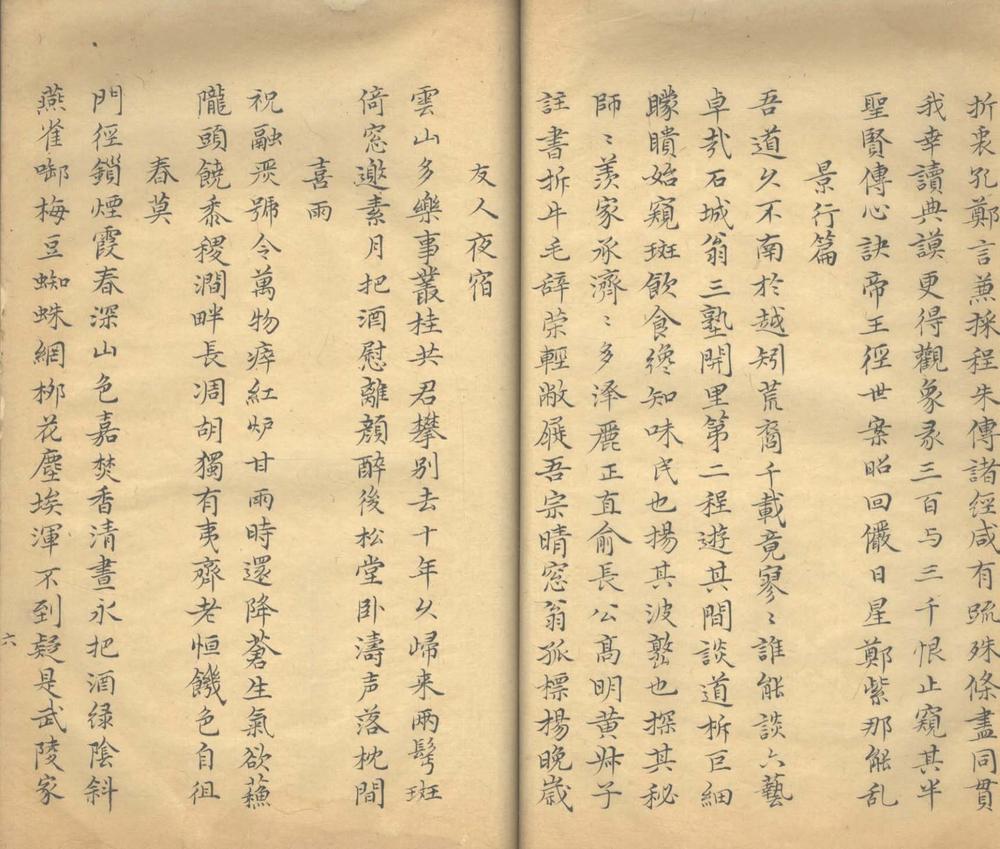 折衷孔鄭言兼採程朱傳諸經咸有疏殊條盡同貫
我幸讀典謨更得觀象彖三百与三千恨止窺其半
聖賢傳心訣帝王徑世案昭回儼日星鄭紫那能乱
景行篇
吾道久不南於越矧荒裔千載竟寥〻誰能談六藝
卓㦲石城翁三塾開里第二程遊其間談道柝巨細
矇瞶始窺斑飲食纔知味氏也揚其波塾也探其秘
師〻羨家承濟〻多泽麗正直俞長公高明黄叔子
註書折牛毛辞荣輕敝屣吾宗晴窓翁孤標楊晚歳
友人夜宿
雲山多樂事叢桂共君攀別去十年久歸来兩髩斑
倚窓邀素月把酒慰離顏醉後松堂卧濤声落枕間
喜雨
祝融嚴號令萬物瘁紅炉甘雨時還降蒼生氣欲蘓
隴頭饒黍稷澗畔長凋胡獨有夷齊老恒饑色自徂
春莫
門徑鎻煙霞春深山色嘉焚香清晝永把酒緑陰斜
燕雀啣梅豆蜘蛛網栁花塵埃渾不到疑是武陵家
六